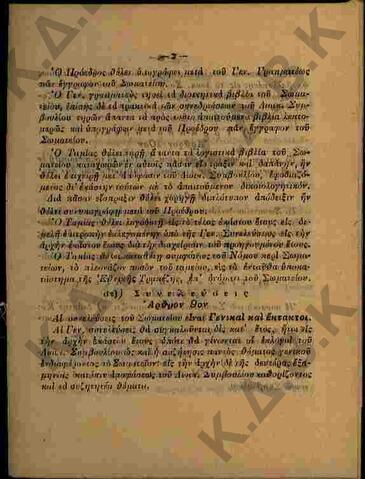 — 2 —
Ὁ Πρόεδρος θέλει ὑπογράφει μετὰ τοῦ Γεν. Γραμματέως
πᾶν ἔγγραφον τοῦ Σωματείου.
Ὁ Γεν. γραμματεὺς τηρεῖ τὰ διοικητικὰ βιβλία τοῦ Σωμα-
τείου, ἐπίσης δὲ τὰ πρακτικὰ τῶν συνεδριάσεων τοῦ Διοικ. Συμ-
βουλίου τηρῶν ἅπαντα τὰ πρὸς τοῦτο ἀπαιτούμενα βιβλία λεπτο-
μερῶς καὶ ὑπογράφων μετὰ τοῦ Προέδρου πᾶν ἔγγραφον τοῦ
Σωματείου.
Ὁ Ταμίας θέλει τηρῇ ἅπαντα τὰ λογιστικὰ βιβλία τοῦ Σω-
ματείου καταχωρῶν ἐν αὐτοῖς πᾶσαν εἴσπραξιν καὶ δαπάνην, ἣν
θέλει ἐνεργῇ μετ' ἀπόφασιν τοῦ Διοικ. Συμβουλίου, ἐφοδιαζό-
μενος δι' ἑκάστην τούτων μὲ τὸ ἀπαιτούμενον δικαιολογητικόν.
Διὰ πᾶσαν εἴσπραξιν θέλει χορηγῇ διπλότυπον ἀπόδειξιν ἣν
θέλει συνυπογράφῃ μετὰ τοῦ Προέδρου.
Ὁ Ταμίας θέλει λογοδοτῇ εἰς τὸ τέλος ἑκάστου ἔτους εἰς δι-
μελῆ ἐπιτροπὴν ἐκλεγομένην ὑπὸ τῆς Γεν. Συνελεύσεως εἰς τὴν
ἀρχὴν ἑκάστου ἔτους διὰ τὴν διαχείρισιν τοῦ προηγουμένου ἔτους.
Ὁ Ταμίας θέλει καταθέτῃ συμφώνως τοῦ Νόμου περὶ Σωμα-
τείων, τὸ πλεονάζον ποσὸν τοῦ ταμείου, εἰς τὸ ἐνταῦθα ὑποκα-
τάστημα τῆς Ἐθνικῆς Τραπέζης, ἐπ' ὀνόματι τοῦ Σωματείου.
Συνελεύσεις
Ἄρθρον 6ον
Αἱ συνελεύσεις τοῦ Σωματείου εἶναι Γενικαὶ καὶ ἔκτακτοι.
Αἱ Γεν. συνελεύσεις θὰ συγκαλοῦνται δὶς κατ' ἔτος, ἤτοι εἰς
τὴν ἀρχὴν ἑκάστου ἔτους ὁπότε θὰ γίνωνται αἱ ἐκλογαὶ τοῦ
Διοικ. Συμβουλίου ὡς καὶ ἡ συζήτησις παντὸς θέματος γενικοῦ
ἐνδιαφέροντος τὸ Σωματεῖον εἰς τὴν ἀρχὴν δὲ τῆς δευτέρας ἑξα-
μηνίας κατόπιν ἀποφάσεως τοῦ Διοικ. Συμβουλίου καθορίζοντος
καὶ τὰ συζητητέα θέματα.